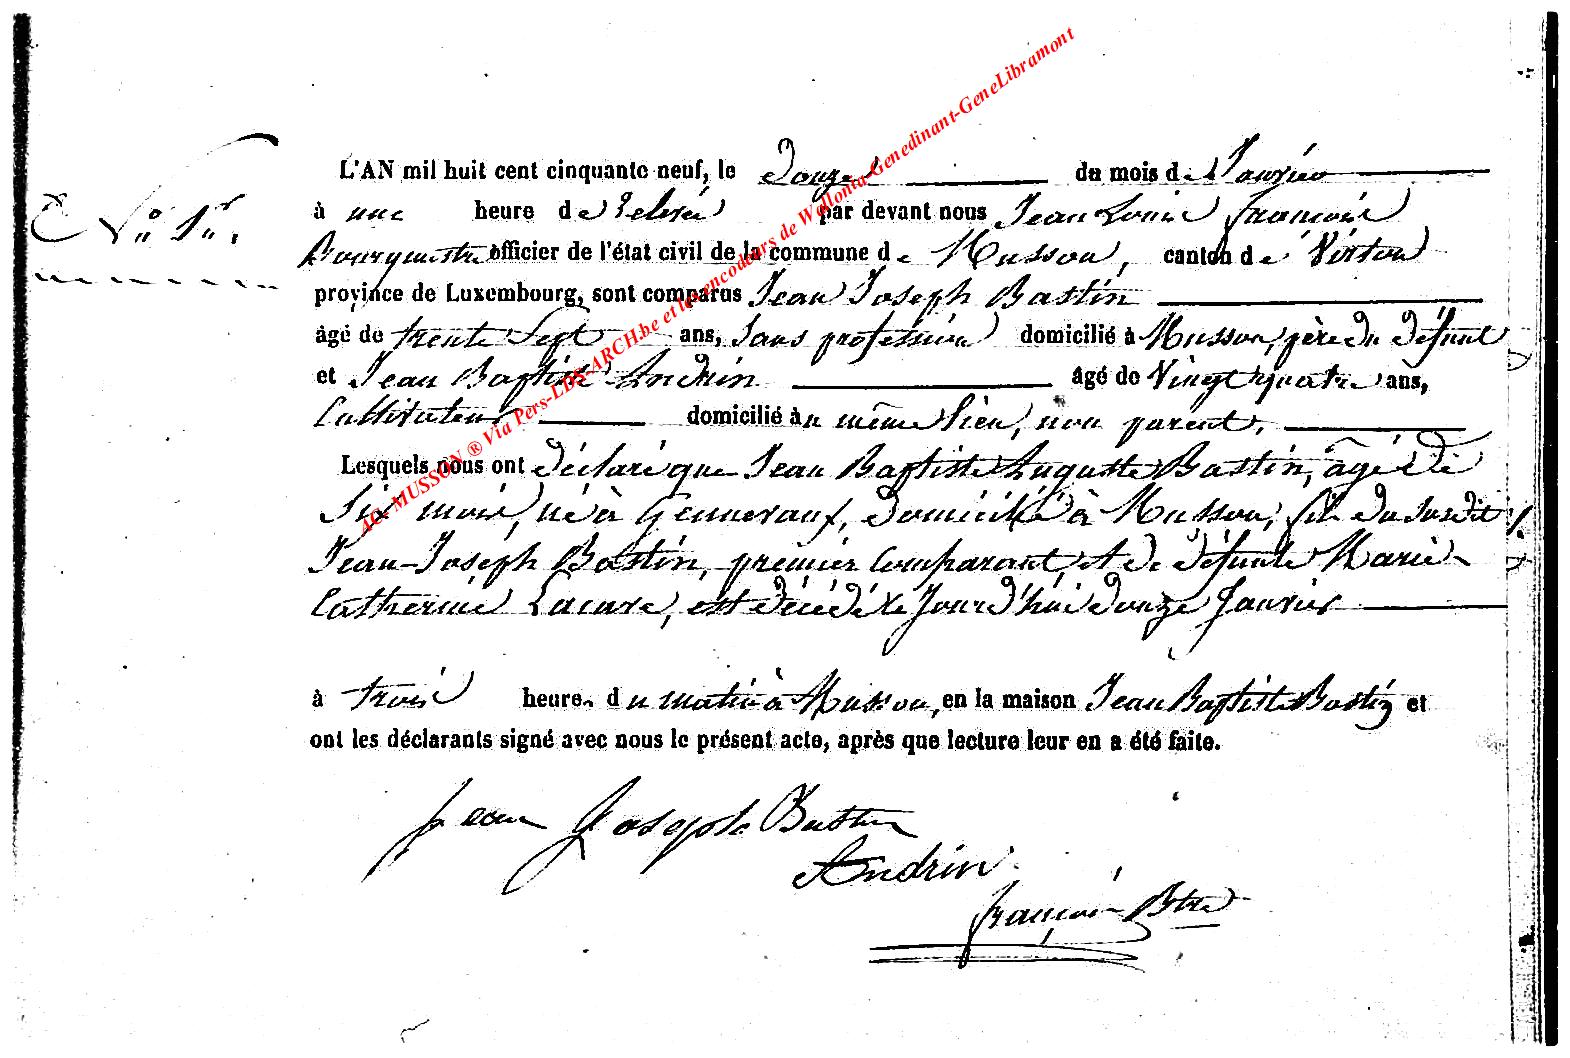 N° 1er.
L'AN mil huit cent cinquante neuf, le Douze du mois de Janvier
à une heure de relevée par devant nous Jean Louis François
Bourgmestre officier de l'état civil de la commune de Musson, canton de Virton
province de Luxembourg, sont comparus Jean Joseph Bastin
âgé de trente Sept ans, Sans profession domicilié à Musson, père du défunt
et Jean Baptiste Andrin âgé de Vingt quatre ans,
Cultivateur domicilié au même lieu, non parent,
Lesquels nous ont déclaré que Jean Baptiste Auguste Bastin, âgé de
Six mois, né à Gennevaux, domicilié à Musson, fils du susdit
Jean-Joseph Bastin, premier Comparant, et de défunte Marie-
Catherine Lacave, est décédé le Jourd'hui douze Janvier
à trois heure du matin à Musson, en la maison Jean Baptiste Bastin et
ont les déclarants signé avec nous le présent acte, après que lecture leur en a été faite.
Jean Joseph Bastin
Andrin
François Btre
AC-MUSSON ® Via Pers-LDS-ARCH.be et les encodeurs de Wallonia-Genedinant-GeneLibramont